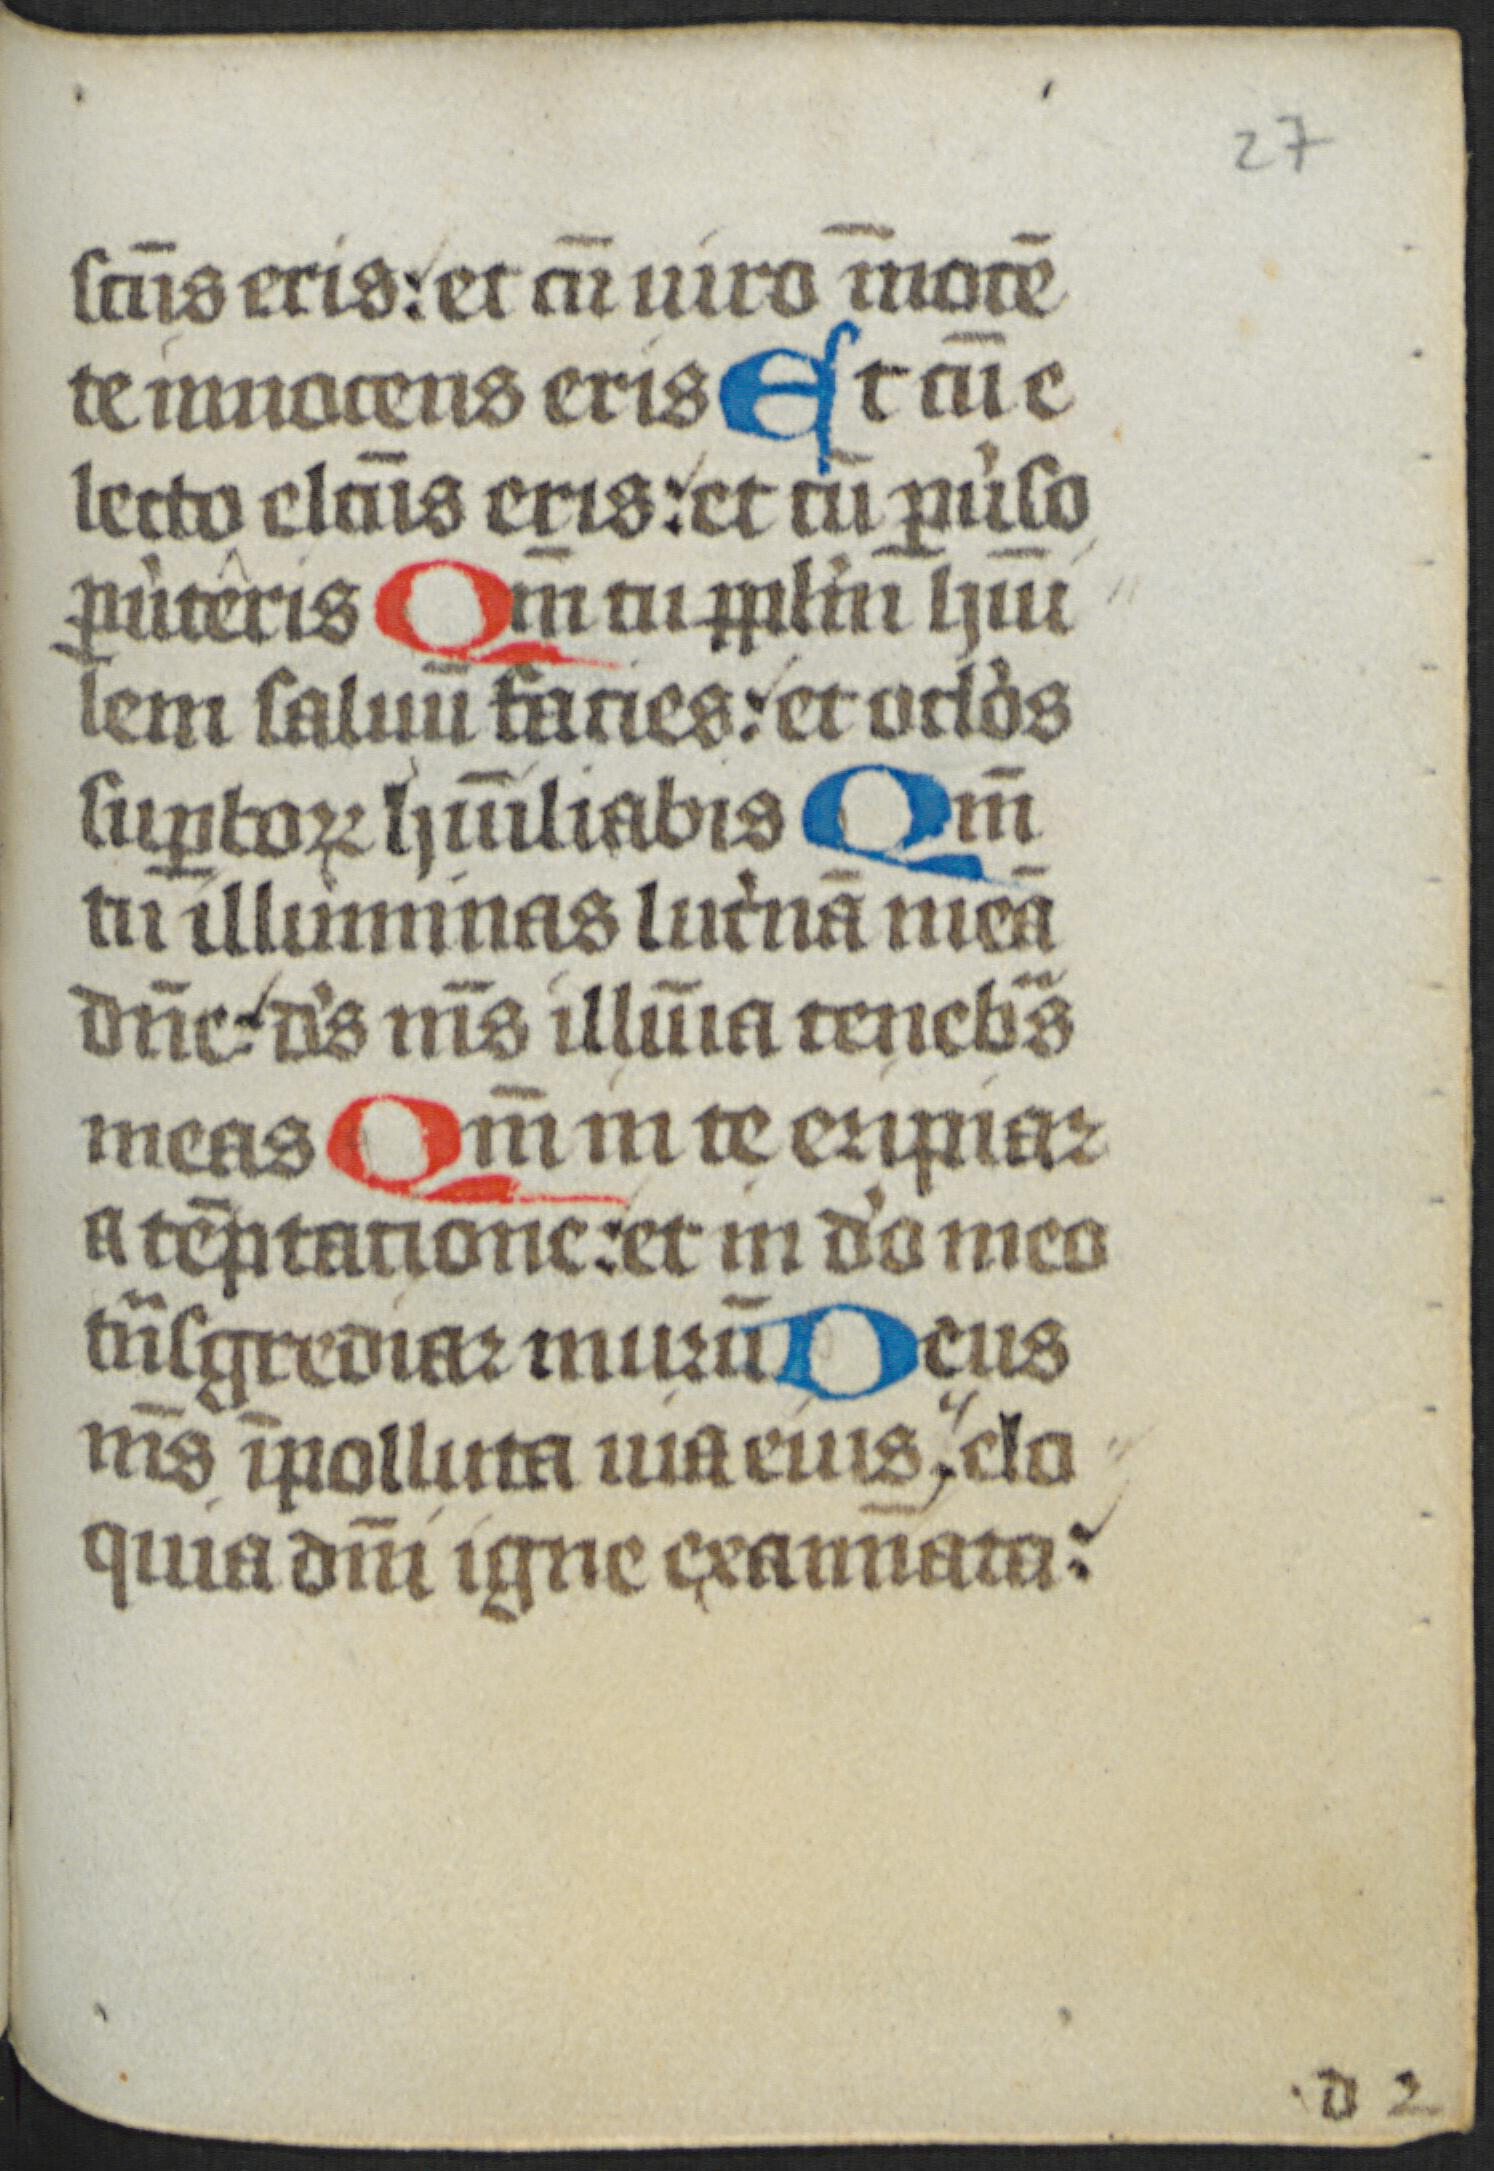 27
sctu̅s eris: et cu̅ uiro i̅noce̅
te innocens eris Et cu̅ e
lecto elcu̅s eris: et cu̅ puˀso
puˀteris Qm̅ tu pplˀm̅ hu̅i
lem saluu̅ facies: et oclˀos
suꝑboꝝ hu̅iliabis Qm̅
tu illuminas lucˀna̅ mea̅
dn̅e: dˀs m̅s illu̅ia tenebˀs
meas Qm̅ in te eripiar
a te̅ptatione: et in dˀo meo
tˀnsgrediar muru̅ Deus
m̅s i̅polluta uia eius, elo
quia dn̅i igne exami̅ata:
d 2